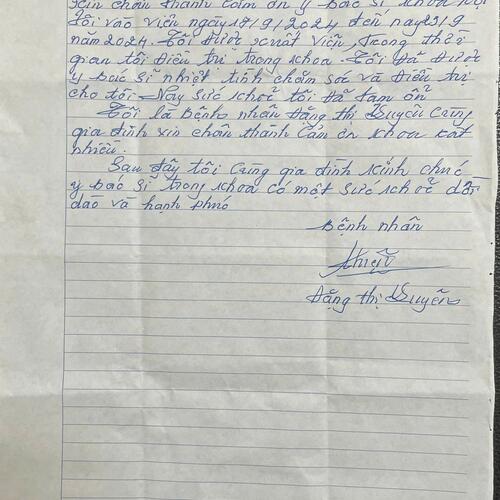 xin chân thành cảm ơn y bác sĩ khoa nội
tôi vào viện ngày 17/9/2024 đến nay 23/9
năm 2024. Tôi được xuất viện, trong thời
gian tôi điều trị trong khoa. Tôi đã được
y bác sĩ nhiệt tình chăm sóc và điều trị
cho tôi. Nay sức khoẻ tôi đã tạm ổn
Tôi là bệnh nhân Đặng thị Quyên cùng
gia đình xin chân thành cảm ơn khoa rất
nhiều.
Sau đây tôi cùng gia đình kính chúc
y bác sĩ trong khoa có một sức khoẻ dồi
dào và hạnh phúc
Bệnh nhân
Đặng thị